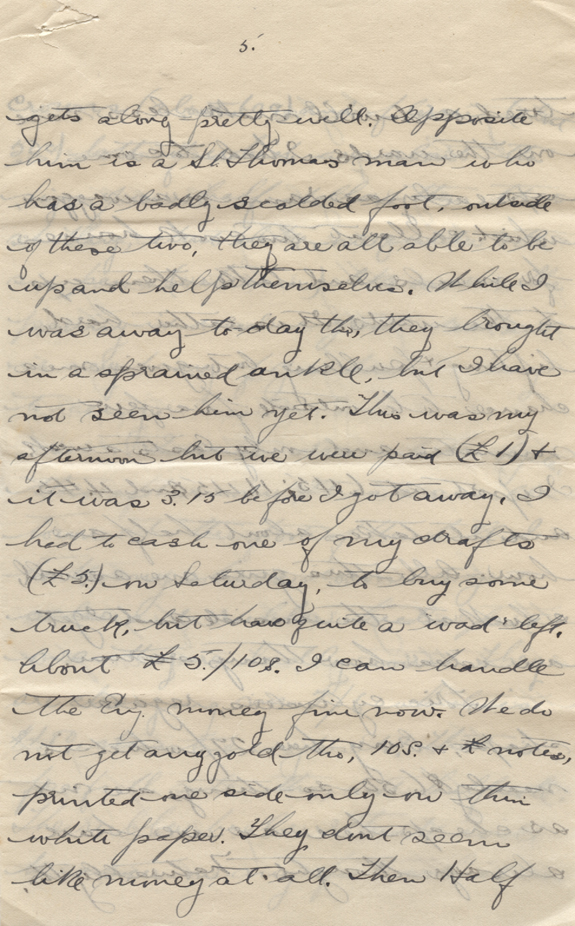 5.
gets along pretty well. Opposite
him is a St. Thomas man who
has a badly scalded foot, outside
of these two, they are all able to be
up and help themselves. While I
was away to-day tho, they brought
in a sprained ankle, but I have
not seen him yet. This was my
afternoon but we were paid (£1) &
it was 3.15 before I got away. I
had to cash one of my drafts
(£5.) on Saturday, to buy some
truck, but have quite a wad left.
About £5./10s. I can handle
the Eng. money fine now. We do
not get any gold tho, 10s. & £ notes,
printed one side only on thin
white paper. They dont seem
like money at all. Then Half